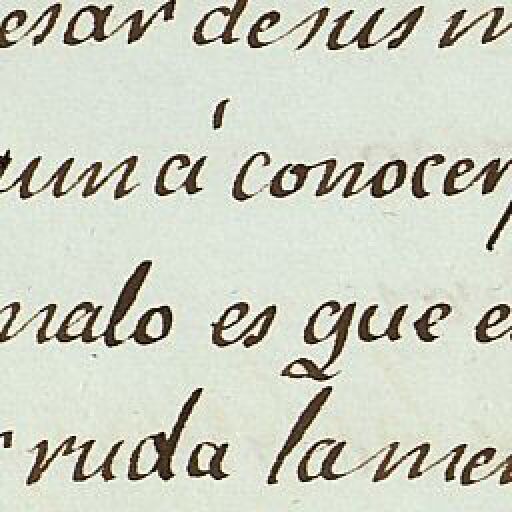 esar de sus m
aun á conocer
malo es que e
r ruda la men